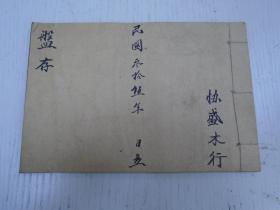 協盛木行
民國叁拾伍年 日立
盤存